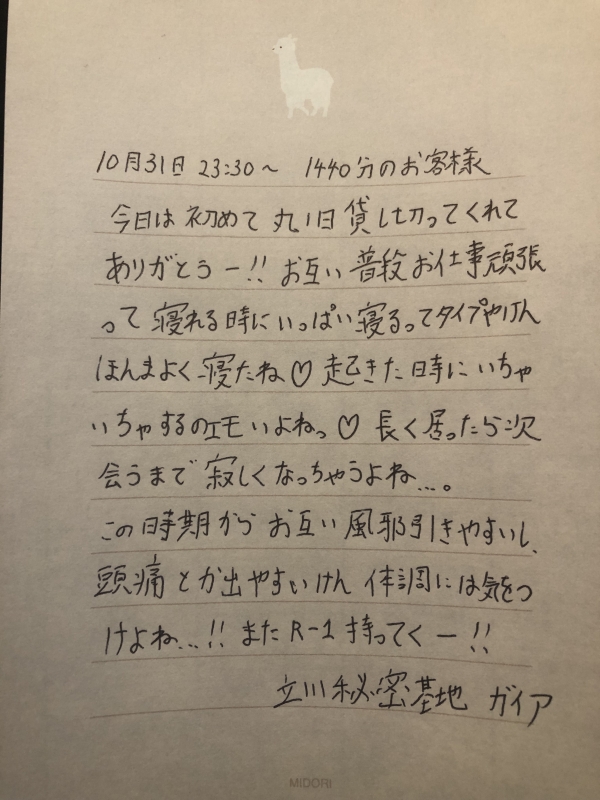 10月31日 23:30〜 1440分のお客様
今日は初めて丸1日貸し切ってくれて
ありがとうー!! お互い普段お仕事頑張
って寝れる時にいっぱい寝るってタイプやけん
ほんまよく寝たね♡ 起きた時にいちゃ
いちゃするのエモいよねっ♡ 長く居ったら次
会うまで寂しくなっちゃうよね…。
この時期からお互い風邪引きやすいし、
頭痛とか出やすいけん 体調には気をつ
けよね…!! また R-1 持ってくー!!
立川秘密基地 ガイア
MIDORI